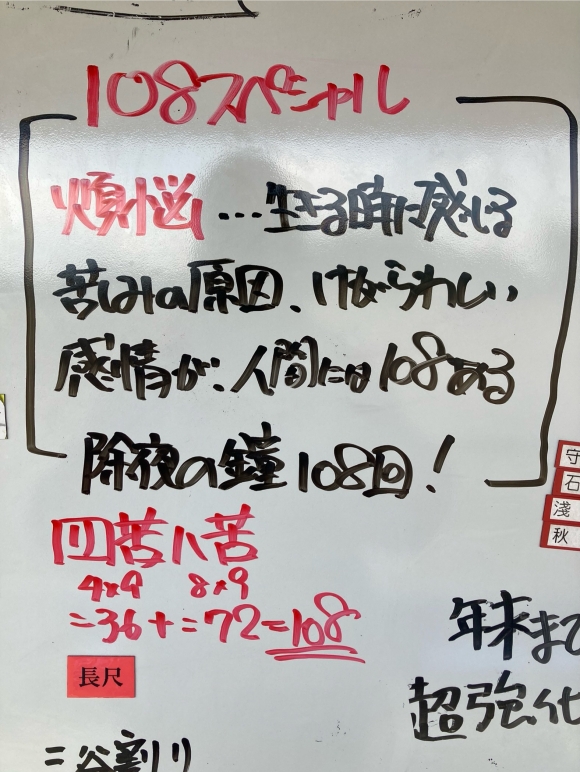 108スペシャル
煩悩…生きる時に感じる
苦しみの原因、けがらわしい
感情が、人間には108ある
除夜の鐘108回!
四苦八苦
4×9 8×9
=36+=72=108
長尺
守
石
淺
秋
年末まで
超強化
二谷割り